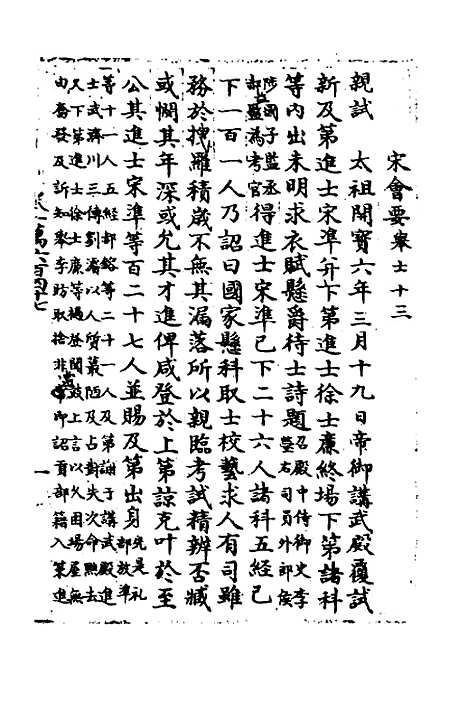 宋會要 舉士十三
親試　太祖開寶六年三月十九日帝御講武殿覆試
新及第進士宋準并下第進士徐士廉終場下第諸科
等內出未明求衣賦懸爵待士詩題召殿中侍御史李
瑩右司員外郎侯
陟國子監丞
郝益為考官得進士宋準已下二十六人諸科五經已
下一百一人乃詔曰國家懸科取士校藝求人有司雖
務於搜羅積歲不無其漏落所以親臨考試精辨否臧
或憫其年深或允其才進俾咸登於上第諒克叶於至
公其進士宋準等百二十七人並賜及第出身先是禮
部放準
等十一人五經郝鎔等二十一人及第謝于講武殿進
士武濟川三傳劉濬以人質最陋及占對失次命黜去
又下第進士徐士廉等撾登聞鼓上言以久困場屋無
由奮發及訴知舉李昉取捨非當即詔貢部籍入策進